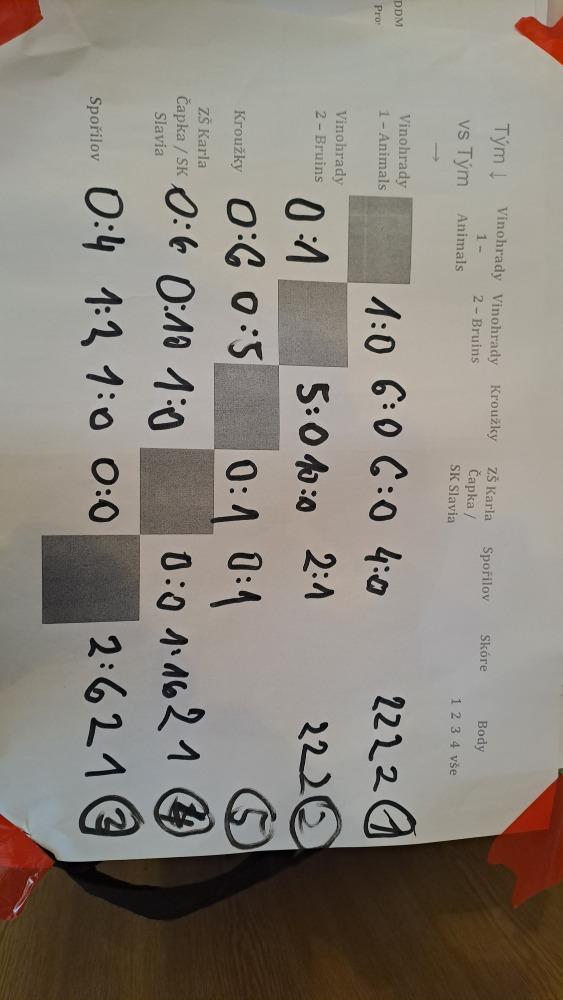 DDM
Pro:
Tým ↓ vs Tým → Vinohrady 1 – Animals Vinohrady 2 – Bruins Kroužky ZŠ Karla Čapka / SK Slavia Spořilov Skóre Body 1 2 3 4 vše
Vinohrady 1 – Animals 1:0 6:0 6:0 4:0 2 2 2 2 1
Vinohrady 2 – Bruins 0:1 5:0 10:0 2:1 2 2 2 2
Kroužky 0:6 0:5 0:1 0:1 5
ZŠ Karla Čapka / SK Slavia 0:6 0:10 1:0 0:0 1:16 2 1 4
Spořilov 0:4 1:2 1:0 0:0 2:6 2 1 3